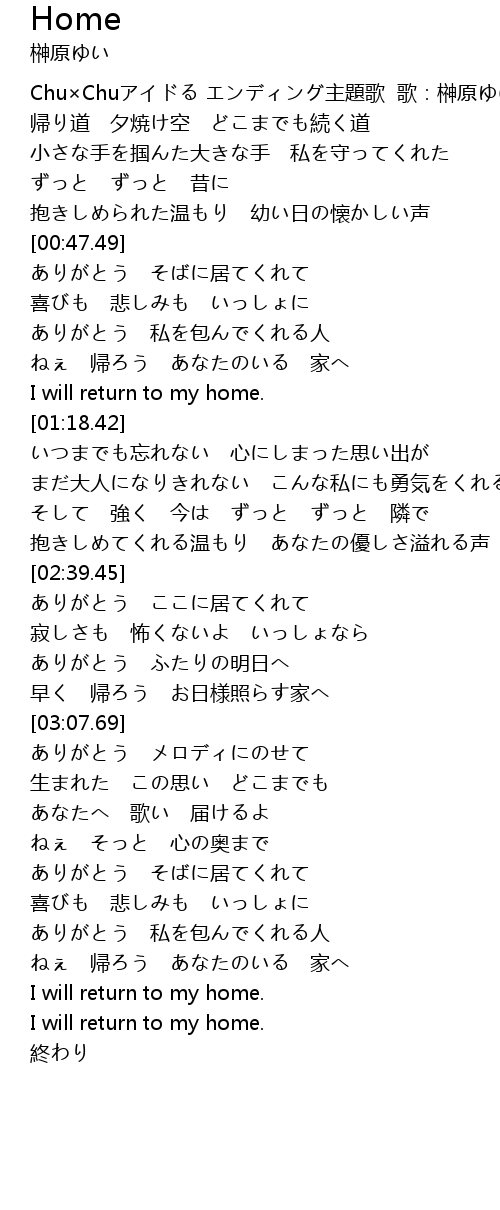 Home
榊原ゆい
Chu×Chuアイドる エンディング主題歌 歌：榊原ゆい
帰り道　夕焼け空　どこまでも続く道
小さな手を掴んた大きな手　私を守ってくれた
ずっと　ずっと　昔に
抱きしめられた温もり　幼い日の懐かしい声
[00:47.49]
ありがとう　そばに居てくれて
喜びも　悲しみも　いっしょに
ありがとう　私を包んでくれる人
ねぇ　帰ろう　あなたのいる　家へ
I will return to my home.
[01:18.42]
いつまでも忘れない　心にしまった思い出が
まだ大人になりきれない　こんな私にも勇気をくれる
そして　強く　今は　ずっと　ずっと　隣で
抱きしめてくれる温もり　あなたの優しさ溢れる声
[02:39.45]
ありがとう　ここに居てくれて
寂しさも　怖くないよ　いっしょなら
ありがとう　ふたりの明日へ
早く　帰ろう　お日様照らす家へ
[03:07.69]
ありがとう　メロディにのせて
生まれた　この思い　どこまでも
あなたへ　歌い　届けるよ
ねぇ　そっと　心の奥まで
ありがとう　そばに居てくれて
喜びも　悲しみも　いっしょに
ありがとう　私を包んでくれる人
ねぇ　帰ろう　あなたのいる　家へ
I will return to my home.
I will return to my home.
終わり